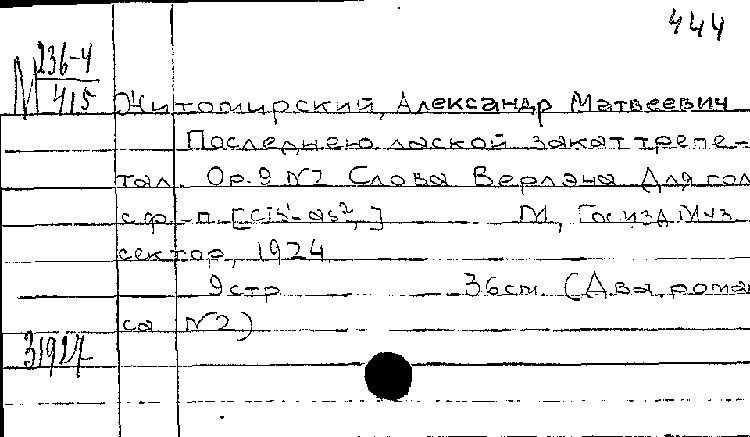 444
М 236-4
415
Житомирский, Александр Матвеевич
Последнею лаской закат трепе-
тал. Op. 9 N2 Слова Верлэна Для гол
с ф-п. [cis¹-as²,] М, Госизд Муз
сектор, 1924
9 стр 36 см. (Два рома
са N2)
31927